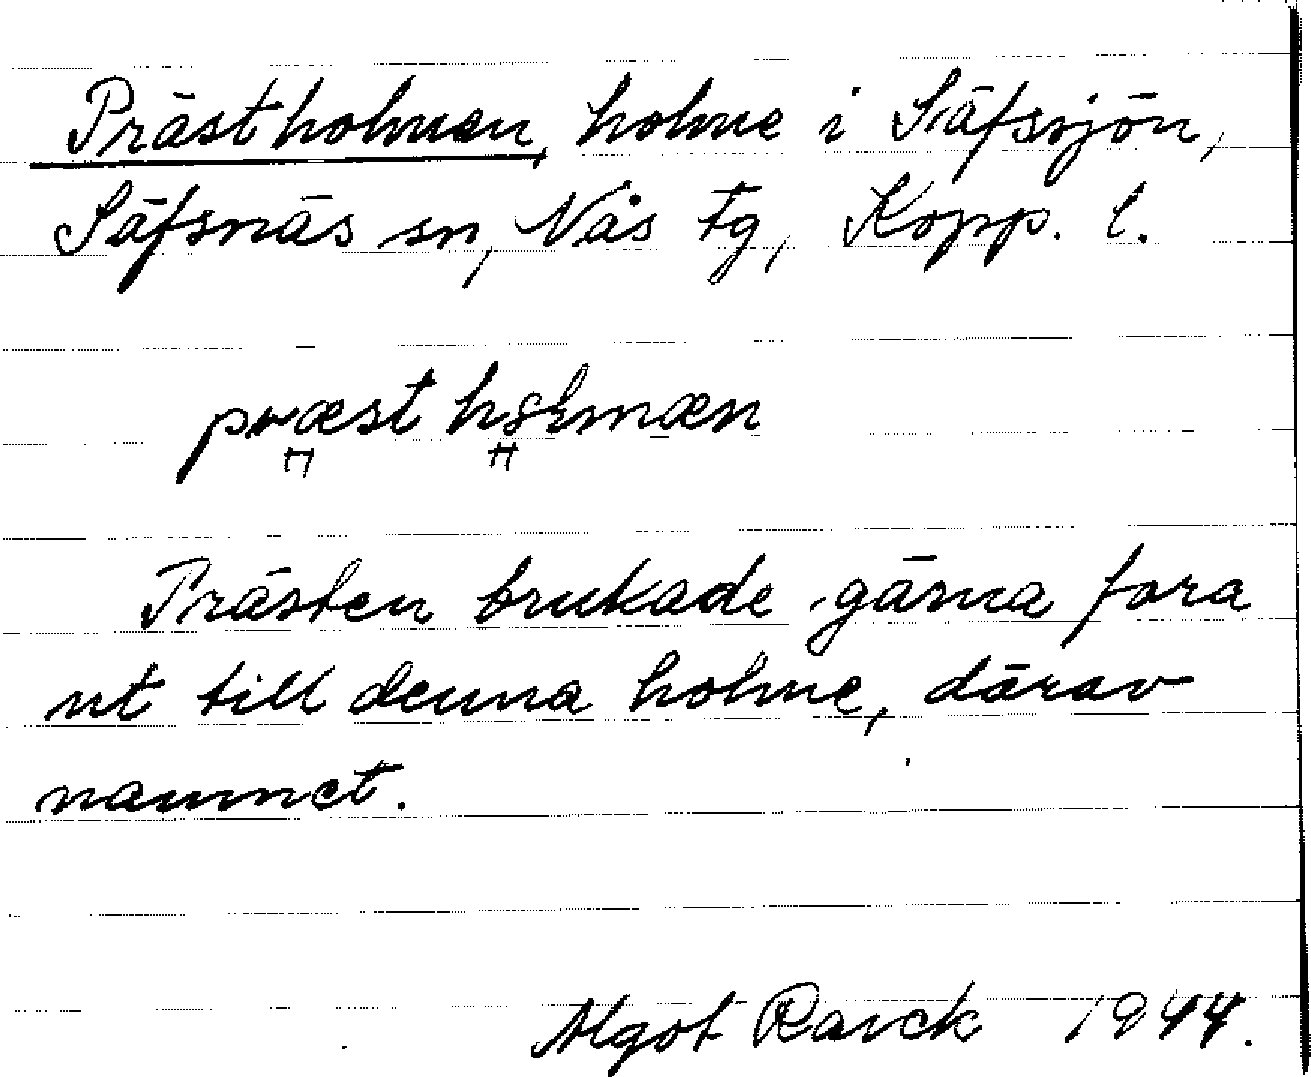 Prästholmen, holme i Säfssjön,
Säfsnäs sn, Nås tg, Kopp. l.
Prästen brukade gärna fara
ut till denna holme, därav
namnet.
Algot Ravck 1944.